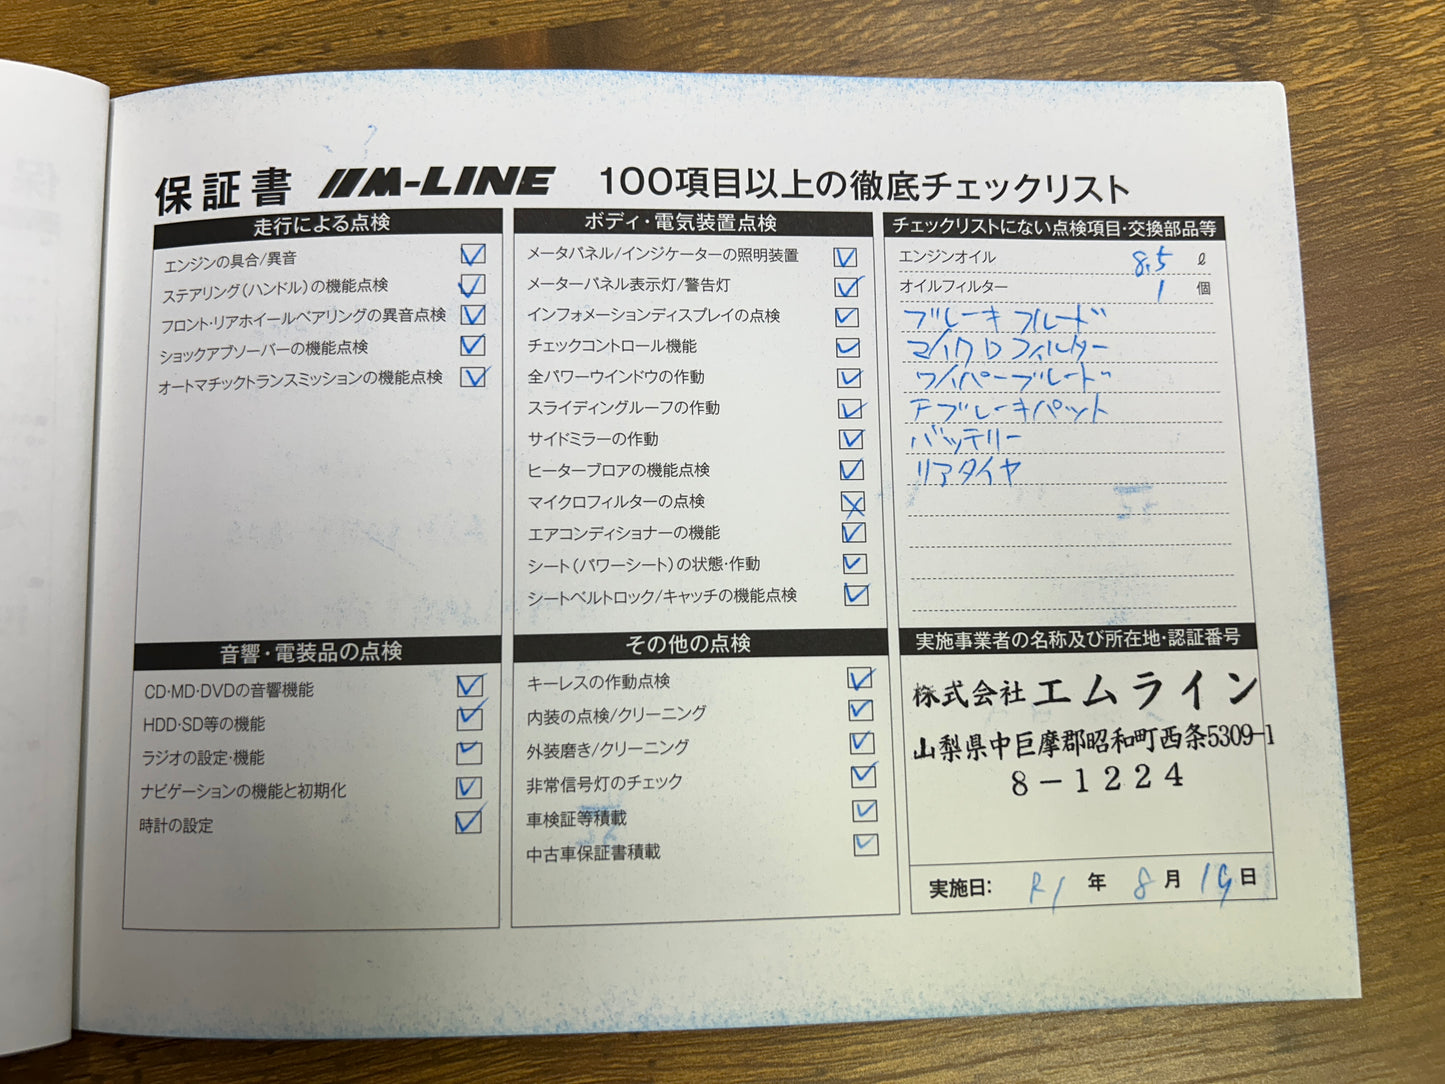 保証書 M-LINE 100項目以上の徹底チェックリスト
走行による点検
エンジンの具合/異音
ステアリング(ハンドル)の機能点検
フロント・リアホイールベアリングの異音点検
ショックアブソーバーの機能点検
オートマチックトランスミッションの機能点検
音響・電装品の点検
CD・MD・DVDの音響機能
HDD・SD等の機能
ラジオの設定・機能
ナビゲーションの機能と初期化
時計の設定
ボディ・電気装置点検
メータパネル/インジケーターの照明装置
メーターパネル表示灯/警告灯
インフォメーションディスプレイの点検
チェックコントロール機能
全パワーウインドウの作動
スライディングルーフの作動
サイドミラーの作動
ヒーターブロアの機能点検
マイクロフィルターの点検
エアコンディショナーの機能
シート(パワーシート)の状態・作動
シートベルトロック/キャッチの機能点検
その他の点検
キーレスの作動点検
内装の点検/クリーニング
外装磨き/クリーニング
非常信号灯のチェック
車検証等積載
中古車保証書積載
チェックリストにない点検項目・交換部品等
エンジンオイル 8.5 ℓ
オイルフィルター 1 個
ブレーキフルード
マイクロフィルター
ワイパーブレード
Fブレーキパット
バッテリー
リアタイヤ
実施事業者の名称及び所在地・認証番号
株式会社エムライン
山梨県中巨摩郡昭和町西条5309-1
8-1224
実施日: R1 年 8 月 19 日